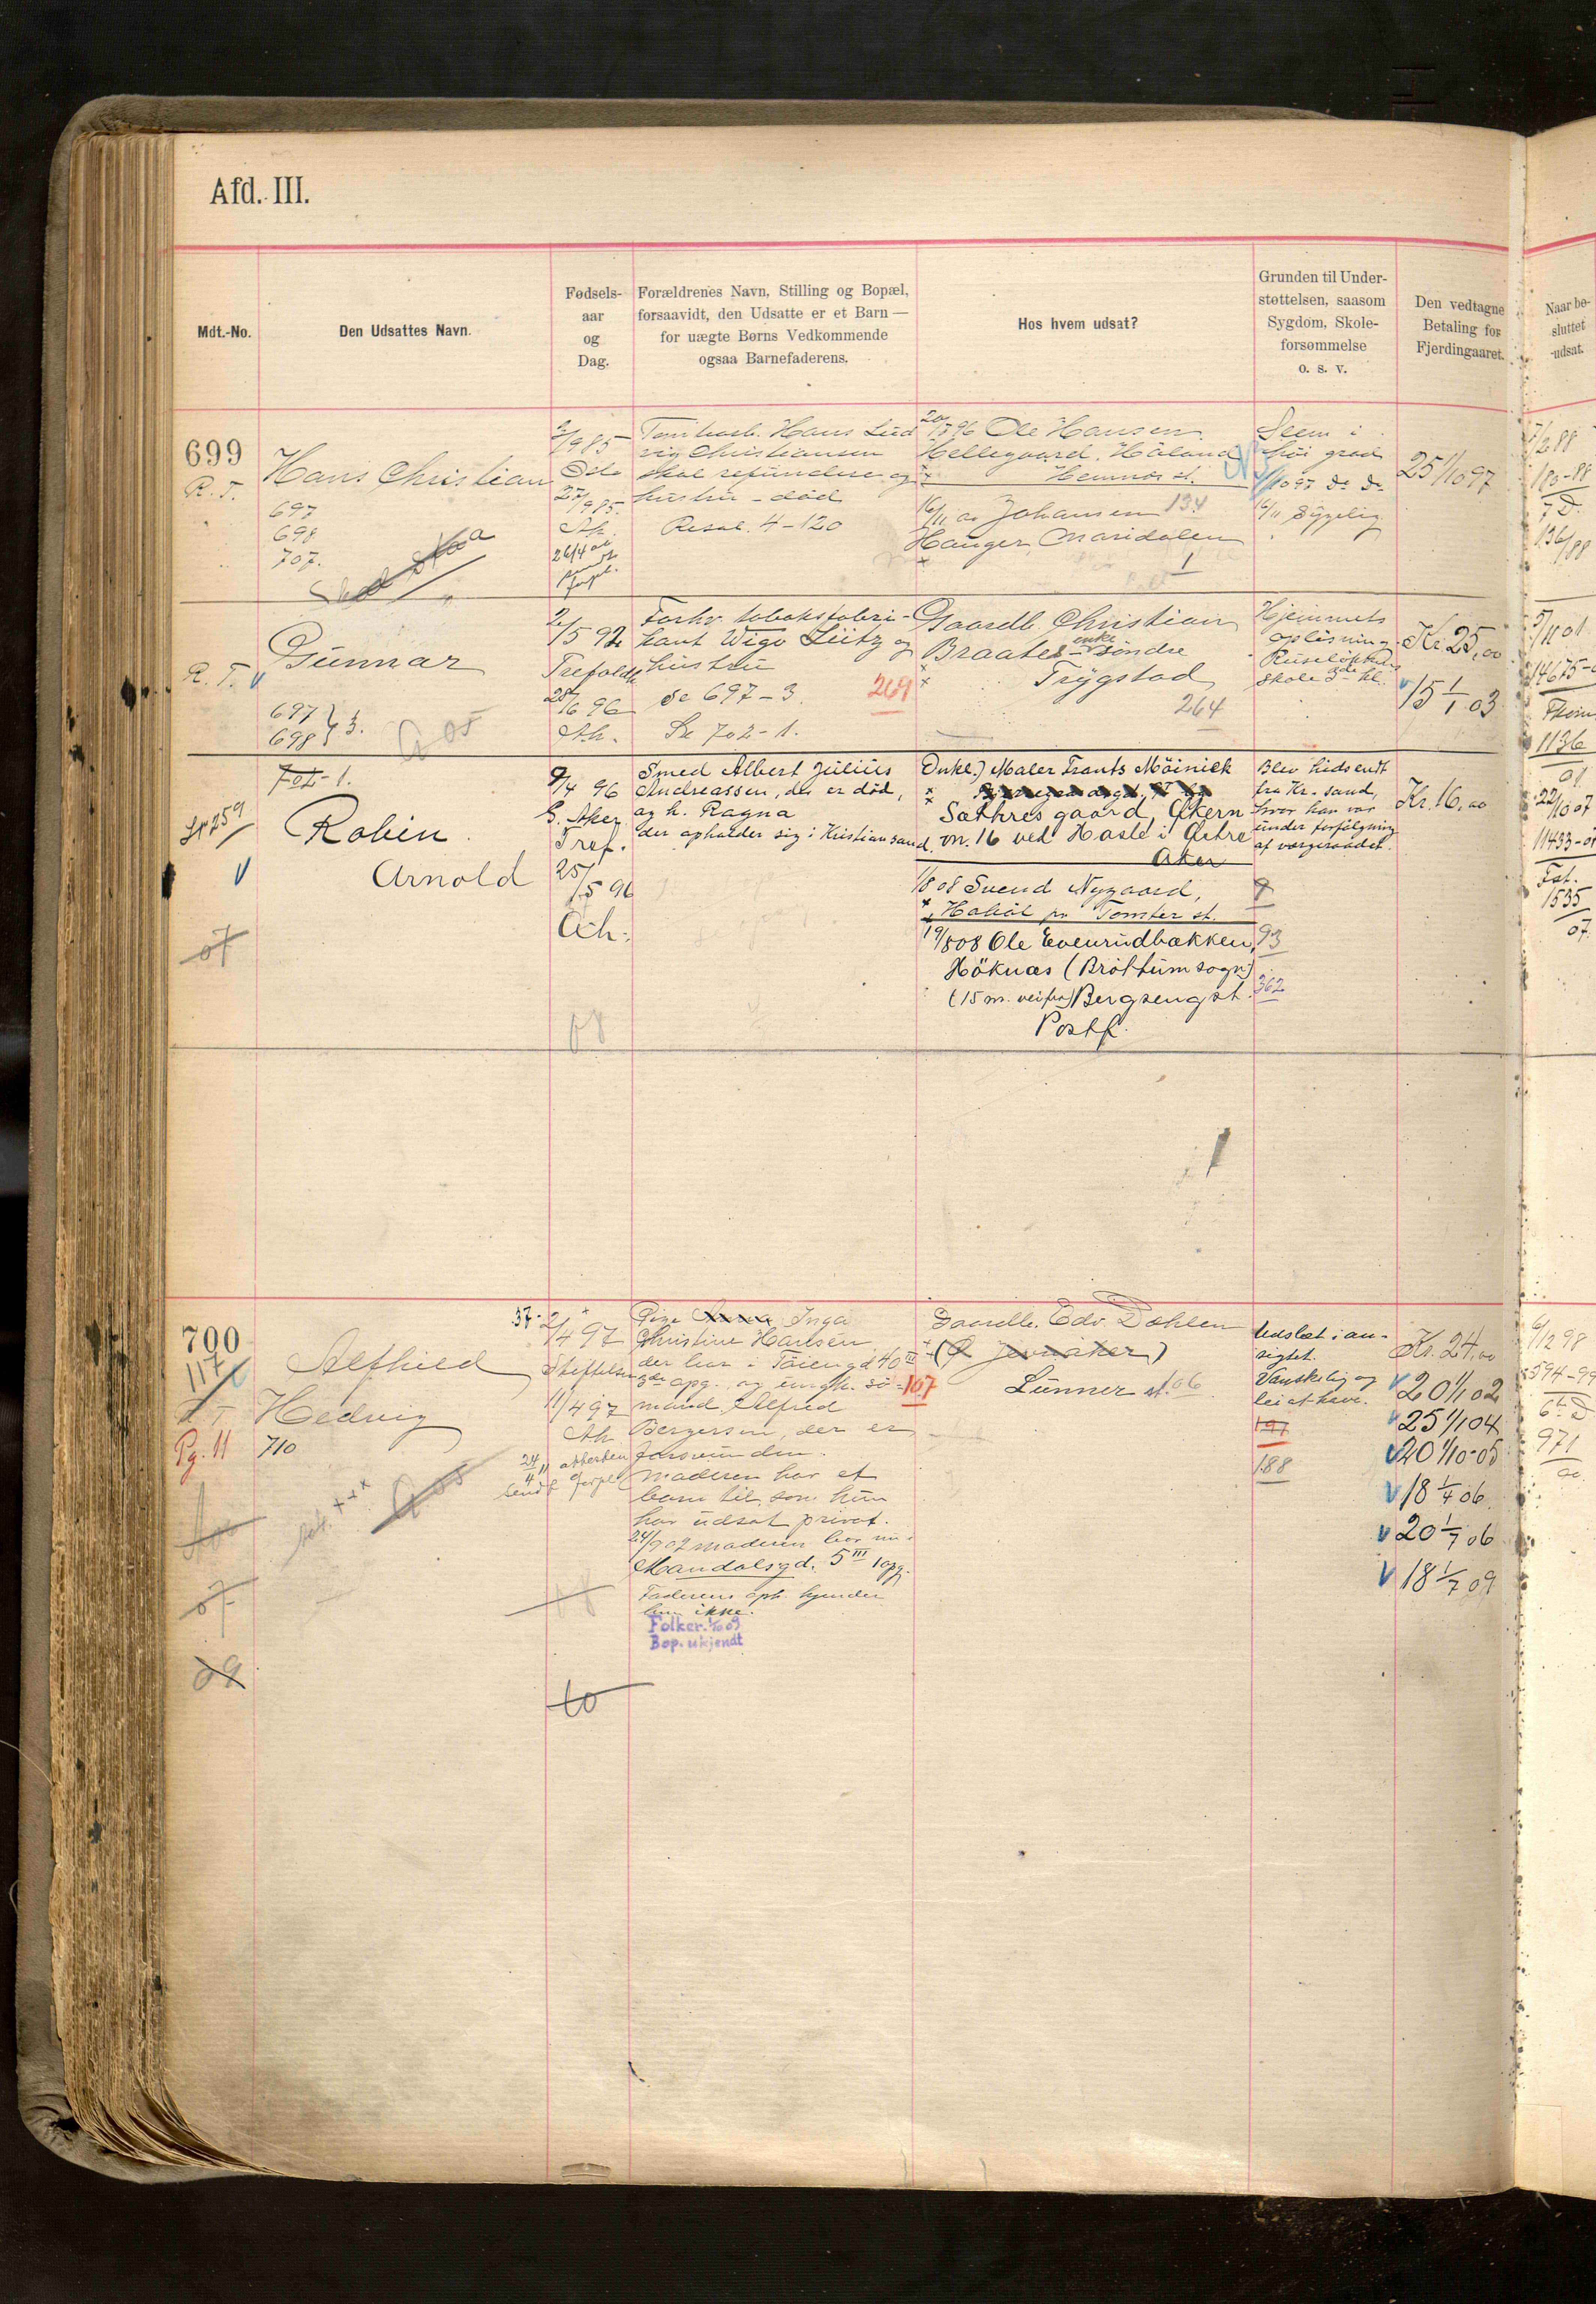 Afd. III.
Mdt.-No.
Den Udsattes Navn.
Fødsels-
aar
og
Dag.
Forældrenes Navn, Stilling og Bopæl,
forsaavidt, den Udsatte er et Barn —
for uægte Børns Vedkommende
ogsaa Barnefaderens.
Hos hvem udsat?
Grunden til Under-
støttelsen, saasom
Sygdom, Skole-
forsømmelse
o. s. v.
Den vedtagne
Betaling for
Fjerdingaaret.
Naar be-
sluttet
udsat.
699
R. T.
Hans Christian
697
698
707.
2/9 85
Oslo
27/9 85.
Ak.
26/4 00
Hans Lud
vig Christiansen
skal refundere og
hustru - død
Resol. 4-120
20/7 96 Ole Hansen
Hellegaard, Høland
Hemnæs st.
16/11 00 Johansen 134
Hauger, Maridalen
1
Slem i
høi grad
1/10 97 do do
16/11 Sygelig
25 1/10 97
7/2 88
180-88
7 D.
136/88
Gunnar
R. T. V
697 } 3.
698
2/5 92
Trefoldh
28/6 96
Ak.
Forhv. tobaksfabri-
kant Wigo Lütz og
hustru
se 697-3.
269
Se 702-1.
Gaardb. Christian
Braates enke søndre
Trygstad
264
Hjemmets
opløsning
Ruseløkkens
skole 3de kl.
Kr 25,00
V 15 1/1 03
5/11 01
14675-0
1136
01
702-1.
259
V
Robin
Arnold
07
9/4 96
G. Aker
Tref.
25/5 96
Ak.
08
Smed Albert Julius
Andreassen, der er død,
og h. Ragna
der opholder sig i Kristiansand.
Onkel.) Maler Frants Möinick
Sæthres gaard, Økern
m. 16 ved Hasle i Østre
Aker
1/8 08 Svend Nygaard,
Habøl pr Tomter st.
19/8 08 Ole Evenrudbakken,
Höknæs (Brøttum sogn)
(15 m. vei fra) Bergseng st.
Postf.
Blev hidsendt
fra Kr. sand,
hvor han var
under forfølgning
af værgeraadet.
93
362
Kr. 16,00
22/10 07
11433-07
Fat.
1535
07.
700
117
Pg. 11
Alfhild
Hedvig
710
07
09
37.
2/4 97
11/4 97
Ak
24/4
attesten
sendt forpl
10
Pige Inga
Christine Karlsen
der bor i Tøiengd 40 III
3de opg. og ungk. sø-
107
mand Alfred
Bergersen, der er
forsvunden.
Moderen har et
barn til, som hun
har udsat privat.
24/9 02 moderen bor nu
Mandalsgd. 5 III 1 opg.
Faderens oph. kjender
hun ikke.
Folker. 1/10 09
Bop. ukjendt
Gaardb. Edv. Dæhlen
(Ø Jevnaker)
Lunner st. 06
Udslæt i an-
sigtet.
Vanskelig og
lei at have.
197
188
Kr. 24,00
V 20 1/1 02
V 25 1/1 04
V 20 1/10-05
V 18 1/4 06
V 20 1/7 06
V 18 1/7 09
6/12 98
594-99
6te D
971
00